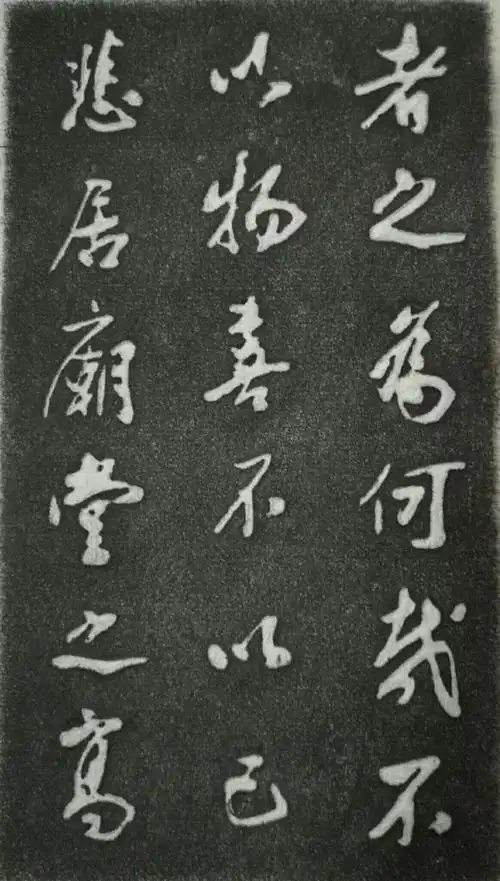 者之為何哉不
以物喜不以己
悲居廟堂之高